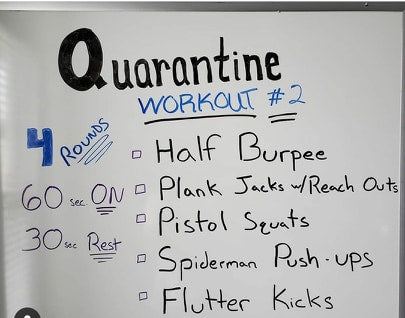 Quarantine
WORKOUT #2
4 ROUNDS
60 sec ON
30 sec Rest
Half Burpee
Plank Jacks w/Reach Outs
Pistol Squats
Spiderman Push-ups
Flutter Kicks